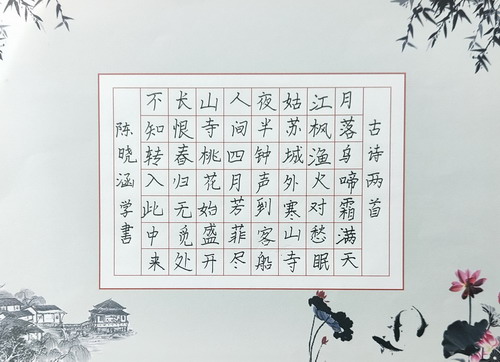 古诗两首
月落乌啼霜满天
江枫渔火对愁眠
姑苏城外寒山寺
夜半钟声到客船
人间四月芳菲尽
山寺桃花始盛开
长恨春归无觅处
不知转入此中来
陈晓涵学書